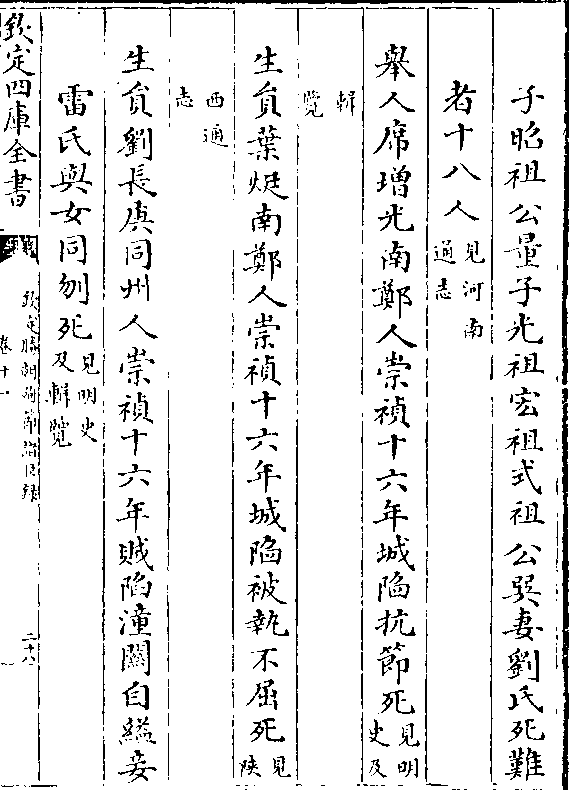 子昭祖公量子光祖宏祖式祖公巽妻劉氏死難
者十八人見河南通志
舉人席增光南鄭人崇禎十六年城陷抗節死見明史及
輯覽
生員葉熀南鄭人崇禎十六年城陷被執不屈死見陝
西通志
生員劉長庚同州人崇禎十六年賊陷潼關自縊妾
雷氏與女同刎死見明史及輯覽
欽定四庫全書
欽定勝朝殉節諸臣錄
卷十一
二十八